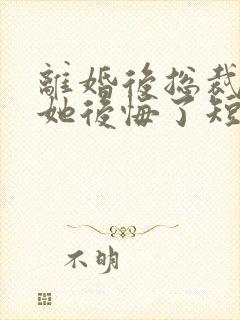 離婚後總裁
她後悔了短
不明